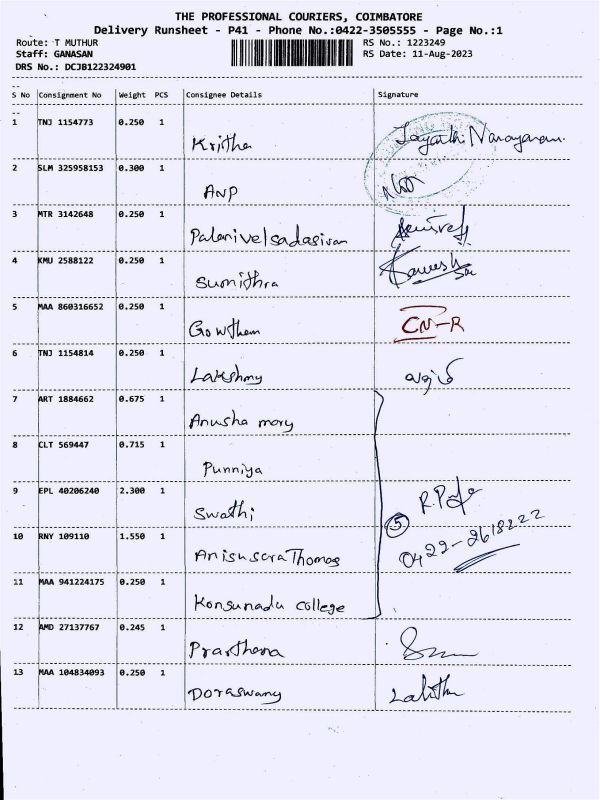 THE PROFESSIONAL COURIERS, COIMBATORE
Delivery Runsheet - P41 - Phone No.:0422-3505555 - Page No.:1
Route: T MUTHUR RS No.: 1223249
Staff: GANASAN RS Date: 11-Aug-2023
DRS No.: DCJB122324901
--
S No Consignment No Weight PCS Consignee Details Signature
--
1 TNJ 1154773 0.250 1 Kritha Jayanthi Narayanan.
2 SLM 325958153 0.300 1 ANP
3 MTR 3142648 0.250 1 Palanivelsadasivam
4 KMU 2588122 0.250 1 Sumithra
5 MAA 860316652 0.250 1 Gowtham CN-R
6 TNJ 1154814 0.250 1 Lakshmy
7 ART 1884662 0.675 1 Anusha mary
8 CLT 569447 0.715 1 Punniya
9 EPL 40206240 2.300 1 Swathi
10 RNY 109110 1.550 1 Anisusera Thomas 5 0422-2618222
11 MAA 941224175 0.250 1 Konsunadu college
12 AMD 27137767 0.245 1 Prarthana
13 MAA 104834093 0.250 1 Doraswamy Lalitha